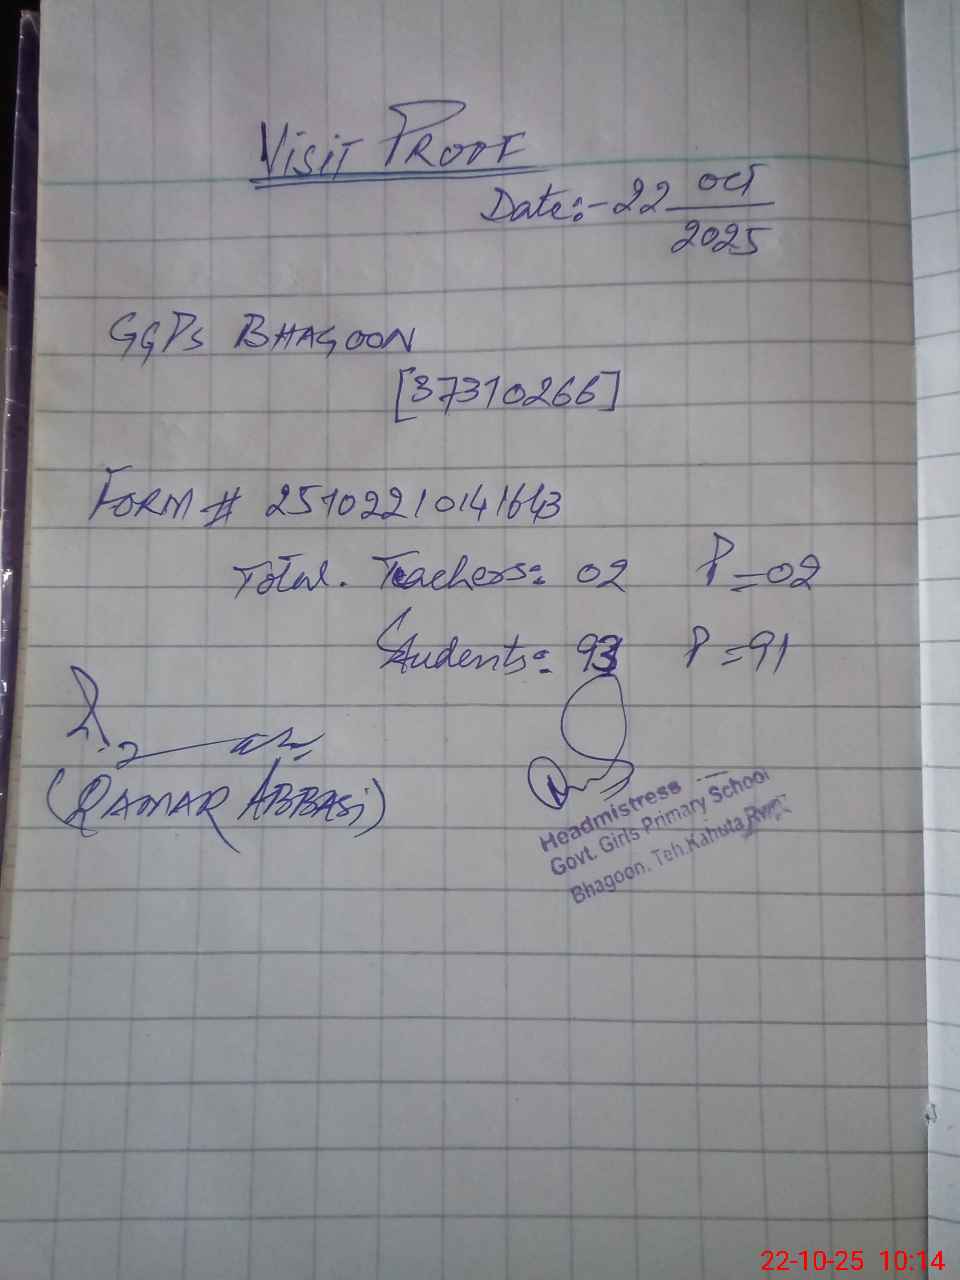 VISIT PROOF
Date:- 22 Oct
2025
GGPS BHAGOON
[37310266]
FORM # 25102210141643
Total. Teachers= 02 P=02
Students= 93 P=91
(QAMAR ABBASi)
Headmistress
Govt. Girls Primary School
Bhagoon. Teh.Kahuta
22-10-25 10:14